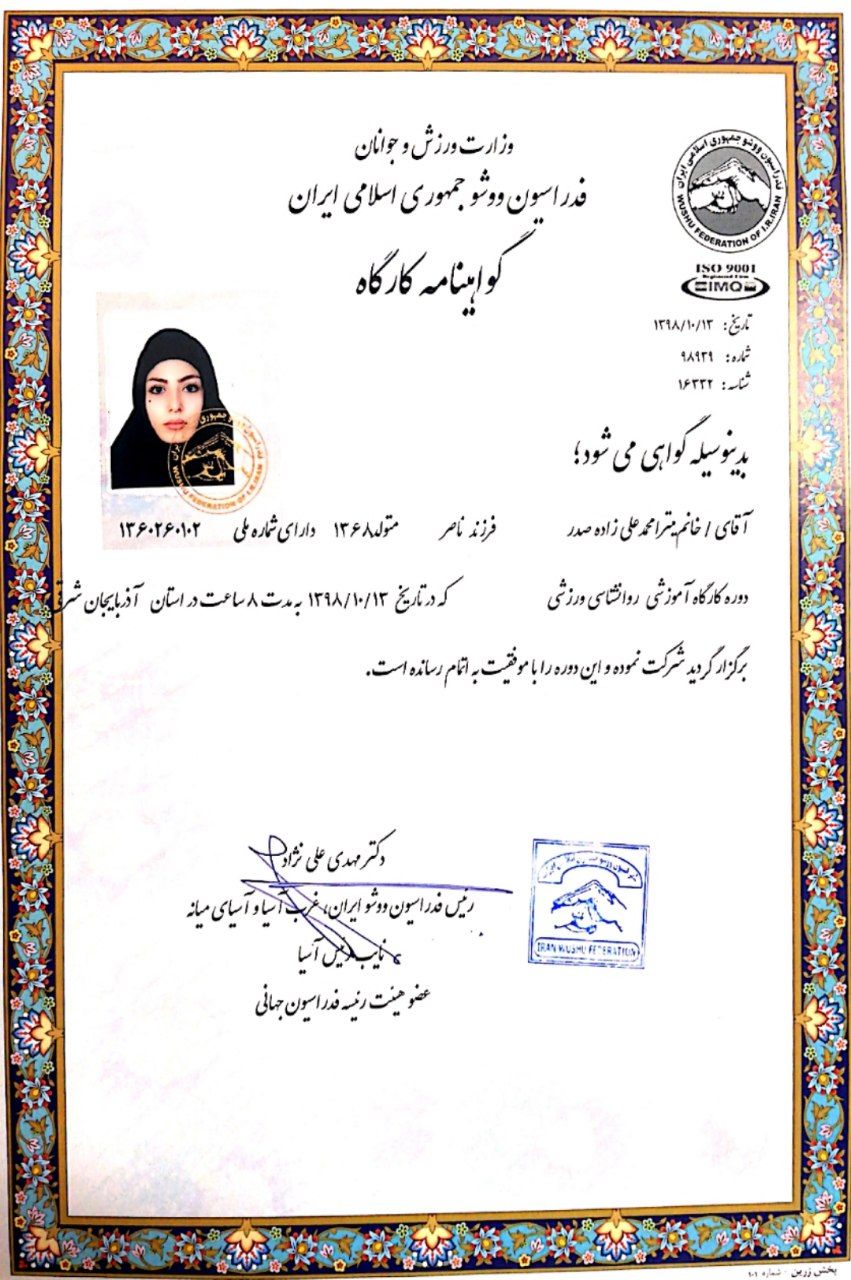 وزارت ورزش و جوانان
فدراسیون ووشو جمهوری اسلامی ایران
گواهینامه کارگاه
فدراسیون ووشو جمهوری اسلامی ایران
WUSHU FEDERATION OF I.R.IRAN
ISO 9001
IMQ
تاریخ: ۱۳۹۸/۱۰/۱۳
شماره: ۹۸۹۳۹
شناسه: ۱۶۳۳۲
بدینوسیله گواهی می شود؛
آقای / خانم میترا محمدعلی زاده صدر فرزند ناصر متولد ۱۳۶۸ دارای شماره ملی ۱۳۶۰۲۶۰۱۰۲
دوره کارگاه آموزشی روانشناسی ورزشی که در تاریخ ۱۳۹۸/۱۰/۱۳ به مدت ۸ ساعت در استان آذربایجان شرقی
برگزار گردید شرکت نموده و این دوره را با موفقیت به اتمام رسانده است.
دکتر مهدی علی نژاد
رئیس فدراسیون ووشو ایران، غرب آسیا و آسیای میانه
نایب رئیس آسیا
عضو هیئت رئیسه فدراسیون جهانی
IRAN WUSHU FEDERATION
پخش زرین - شماره ۱۰۱